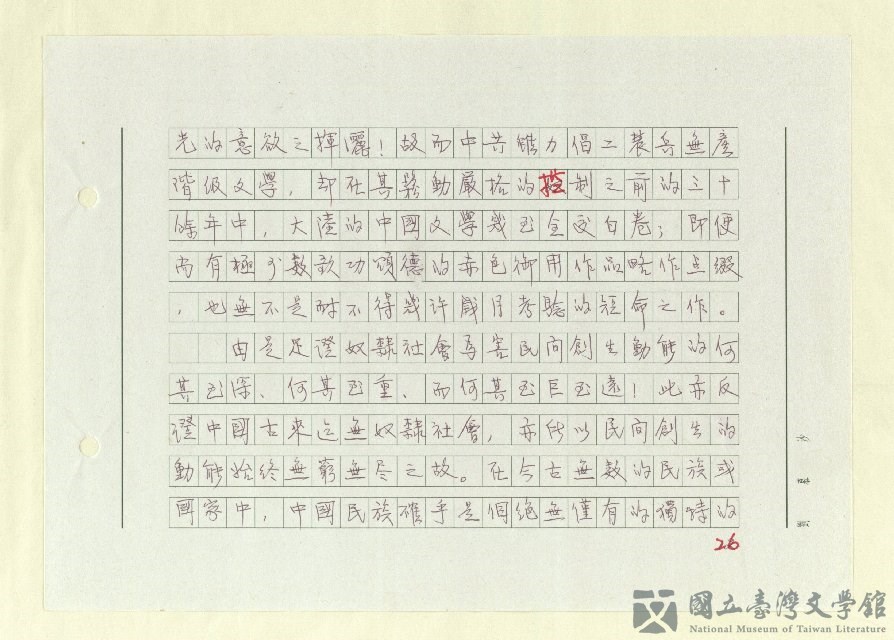 光的意欲之揮灑！故而中共雖力倡工農兵無產
階級文學，却在其鬆動嚴格的控制之前的三十
餘年中，大陸的中國文學幾至全交白卷；即便
尚有極少數歌功頌德的赤色御用作品略作点綴
，也無不是耐不得幾许歲月考驗的短命之作。
由是足證奴隸社會為害民间創生動能的何
其至深、何其至重、而何其至巨至遠！此亦反
證中國古來迄無奴隸社會，亦所以民间創生的
動能始終無窮無尽之故。在今古無數的民族或
國家中，中國民族確乎是個絶無僅有的獨特的
26
國立臺灣文學館
National Museum of Taiwan Literature